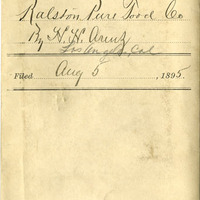 Ralston Pure Food Co
By H. H. Arentz
Los Angeles, Cal
Filed Aug 5, 1895.